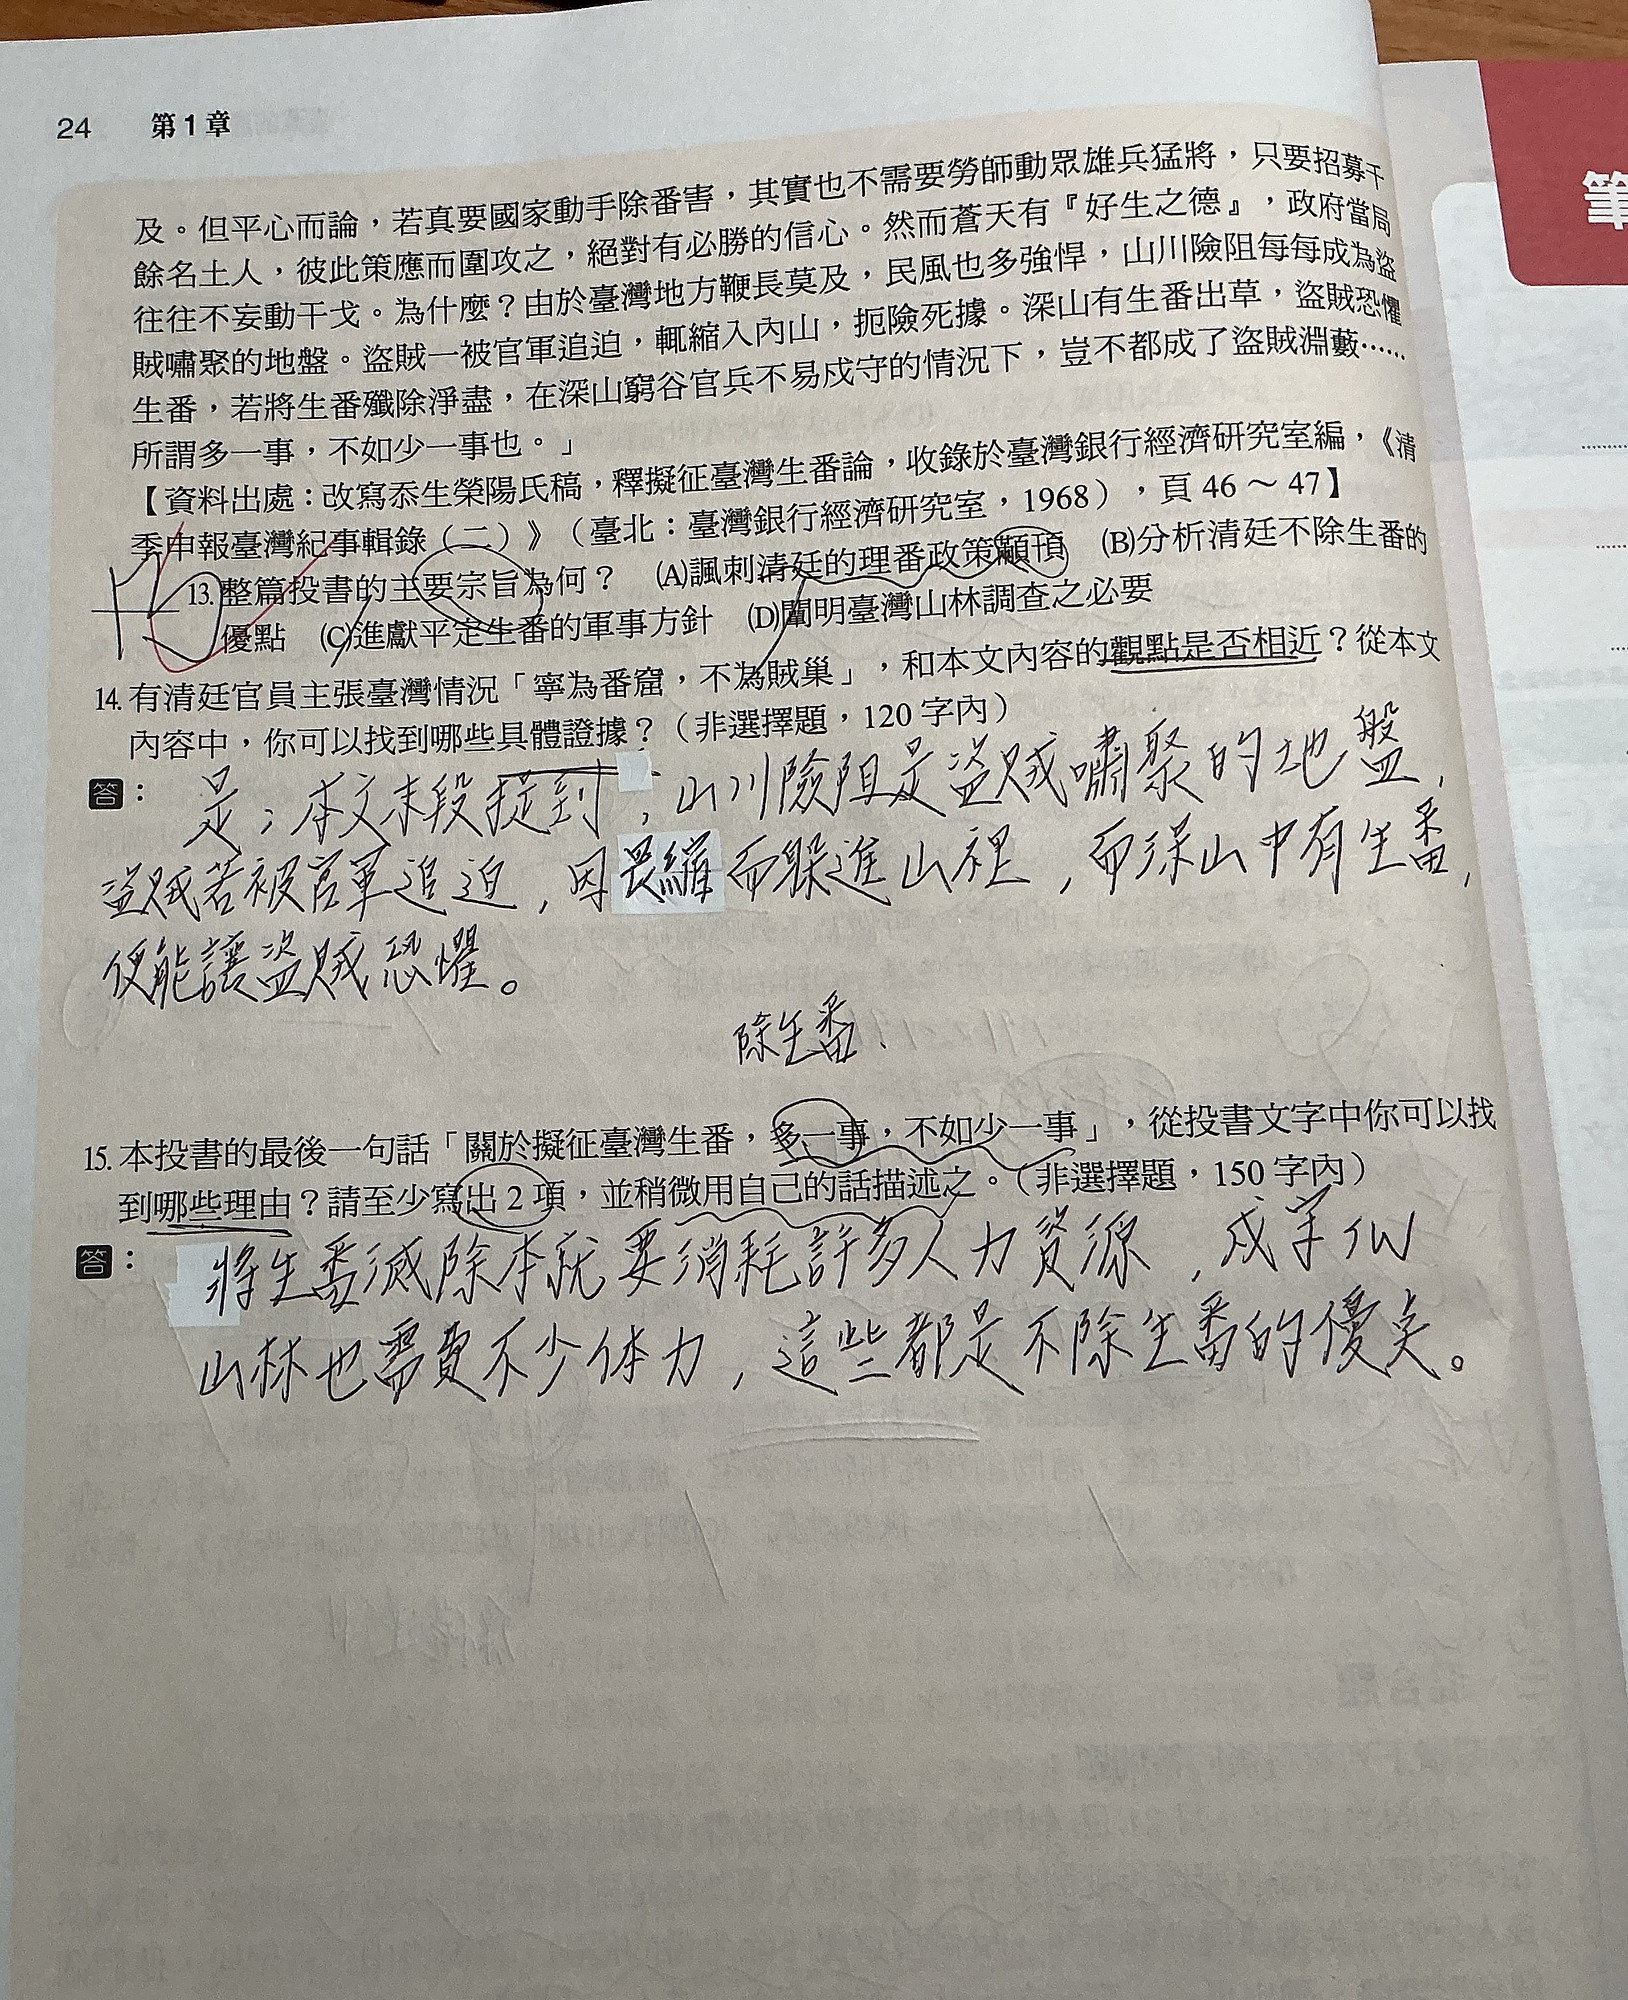 24 第1章
筆
及。但平心而論，若真要國家動手除番害，其實也不需要勞師動眾雄兵猛將，只要招募干
餘名土人，彼此策應而圍攻之，絕對有必勝的信心。然而蒼天有『好生之德』，政府當局
往往不妄動干戈。為什麼？由於臺灣地方鞭長莫及，民風也多強悍，山川險阻每每成為盜
賊嘯聚的地盤。盜賊一被官軍追迫，輒縮入內山，扼險死據。深山有生番出草，盜賊恐懼
生番，若將生番殲除淨盡，在深山窮谷官兵不易戍守的情況下，豈不都成了盜賊淵藪⋯⋯
所謂多一事，不如少一事也。」
【資料出處：改寫忝生榮陽氏稿，釋擬征臺灣生番論，收錄於臺灣銀行經濟研究室編，《清
季申報臺灣紀事輯錄（二）》（臺北：臺灣銀行經濟研究室，1968），頁46～47】
13. 整篇投書的主要宗旨為何？ (A)諷刺清廷的理番政策顢頇 (B)分析清廷不除生番的
優點 (C)進獻平定生番的軍事方針 (D)闡明臺灣山林調查之必要
14. 有清廷官員主張臺灣情況「寧為番窟，不為賊巢」，和本文內容的觀點是否相近？從本文
內容中，你可以找到哪些具體證據？（非選擇題，120字內）
答： 是；本文末段提到，山川險阻是盜賊嘯聚的地盤，
盜賊若被官軍追迫，因畏縮而躲進山裡，而深山中有生番，
便能讓盜賊恐懼。
除生番
15. 本投書的最後一句話「關於擬征臺灣生番，多一事，不如少一事」，從投書文字中你可以找
到哪些理由？請至少寫出2項，並稍微用自己的話描述之。（非選擇題，150字內）
答： 將生番滅除本就要消耗許多人力資源，戍守
山林也需費不少体力，這些都是不除生番的優点。